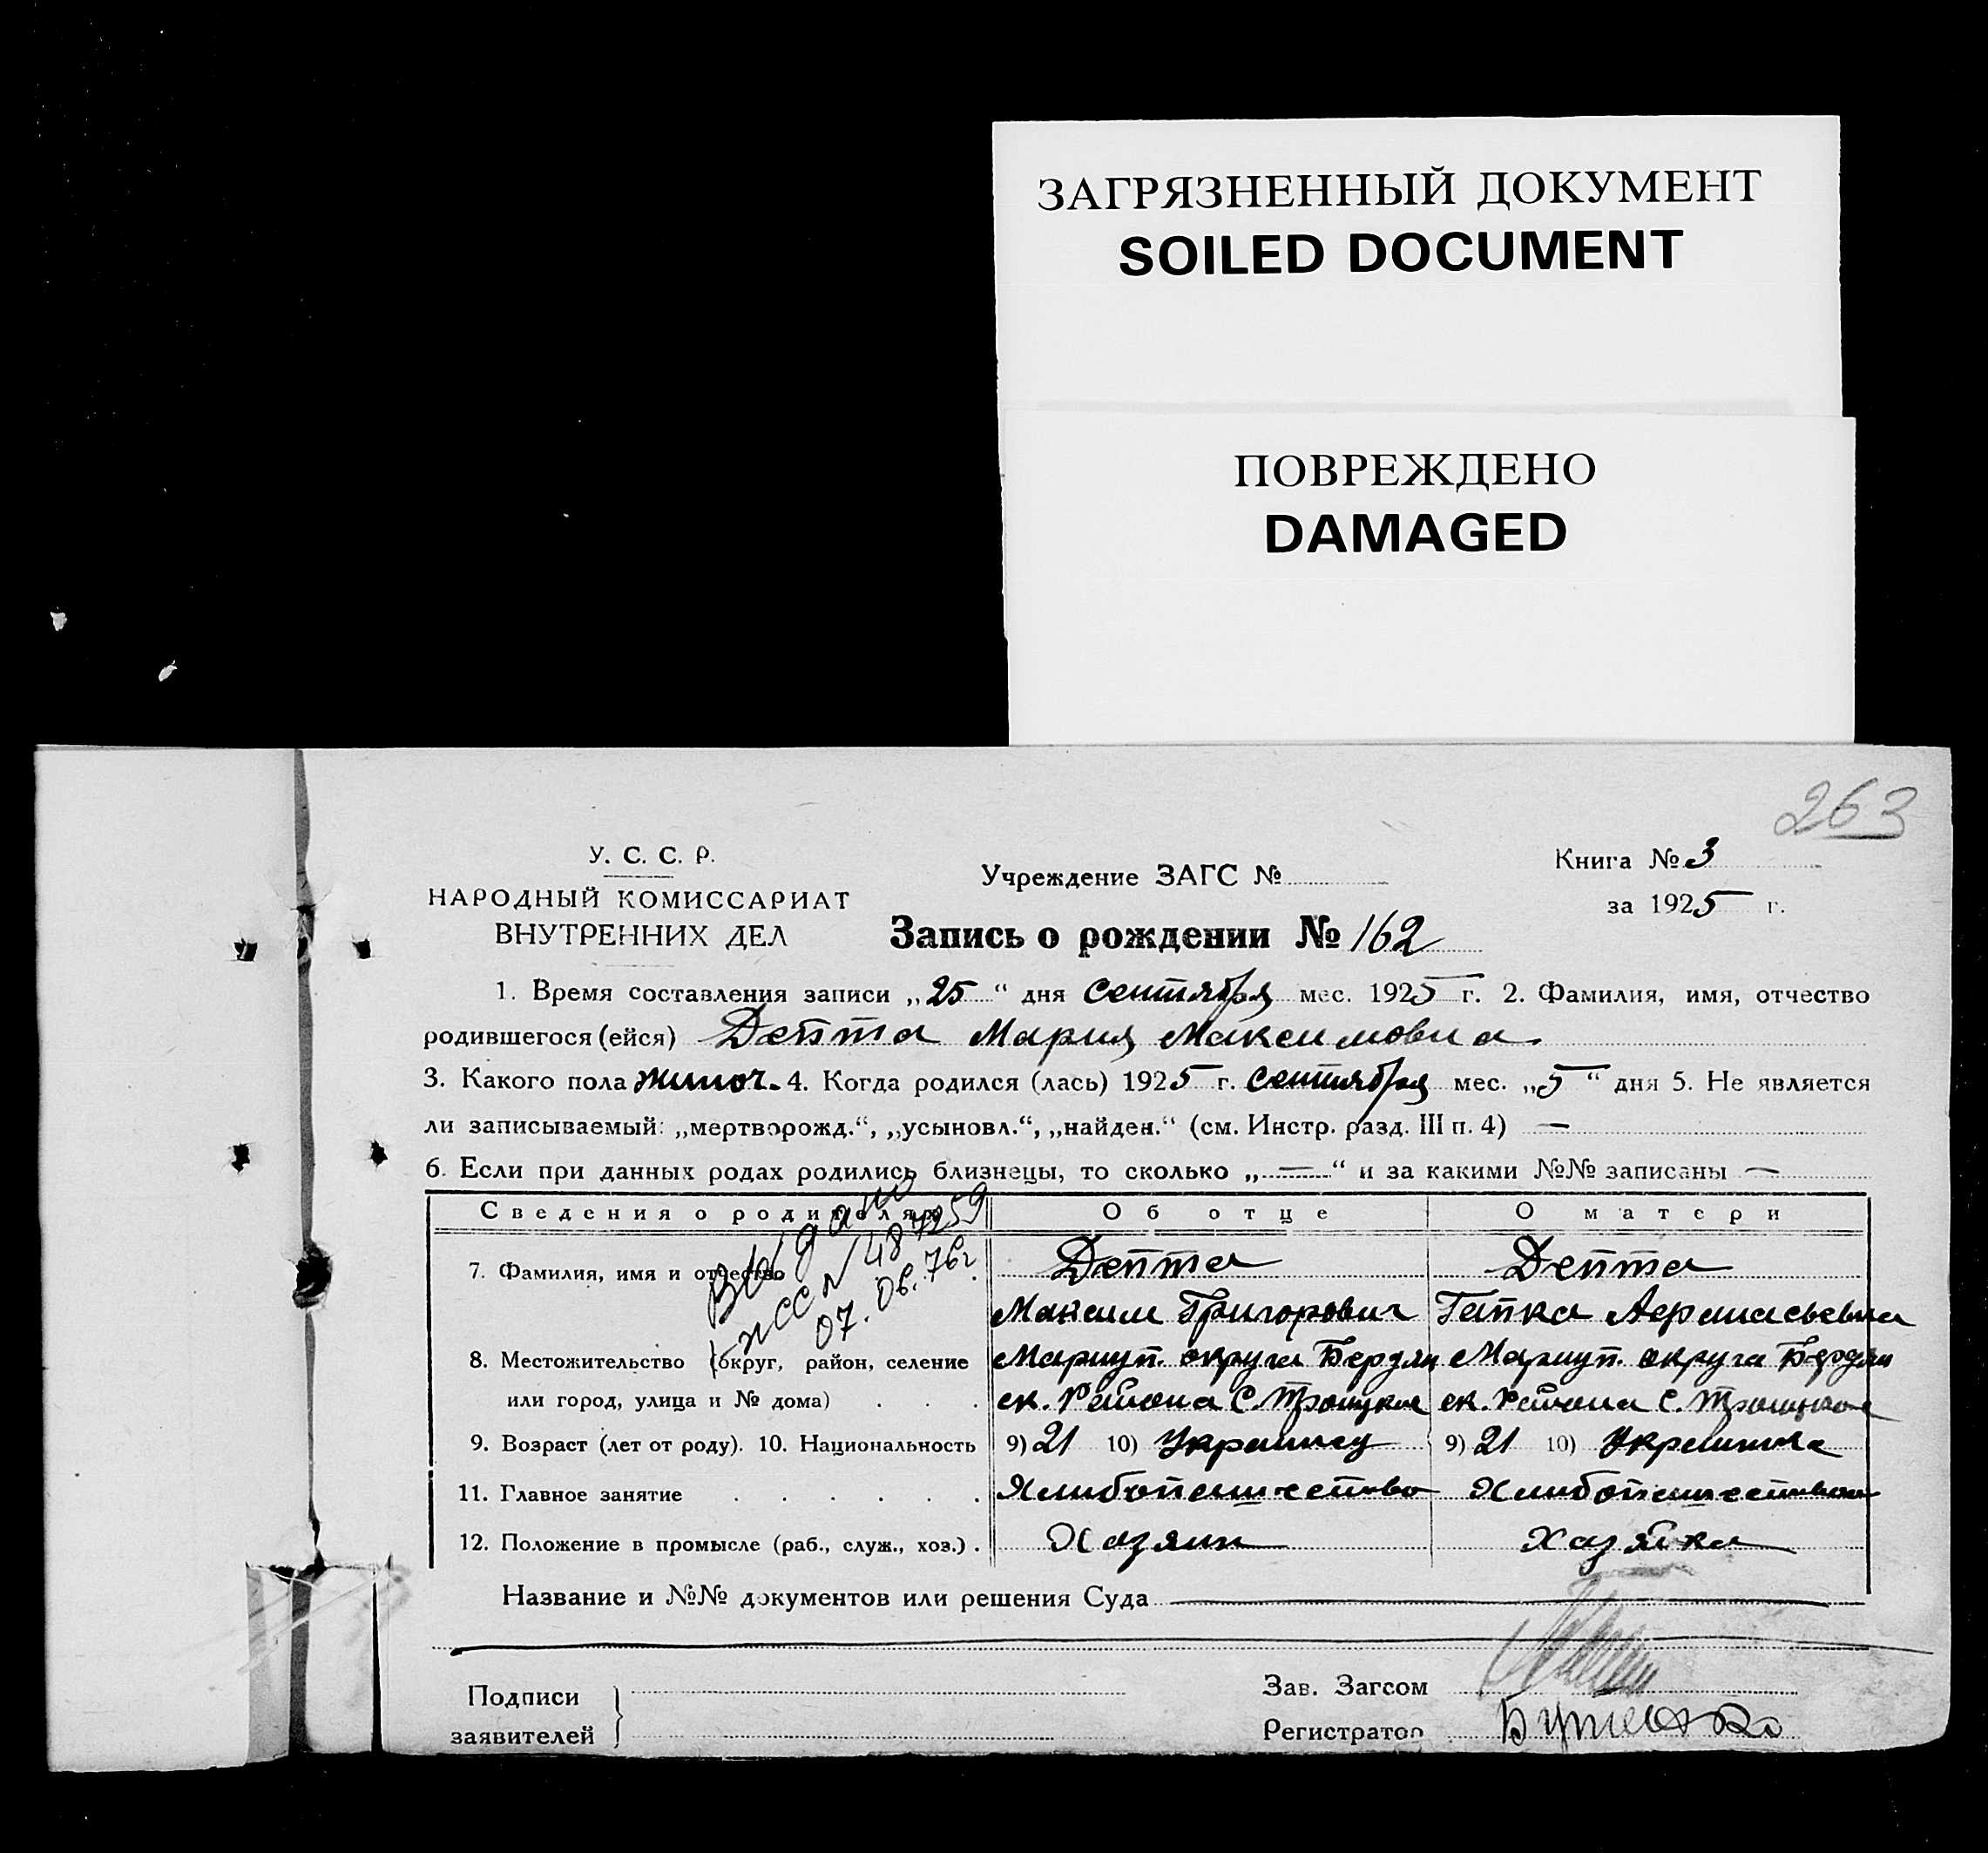 ЗАГРЯЗНЕННЫЙ ДОКУМЕНТ
SOILED DOCUMENT
ПОВРЕЖДЕНО
DAMAGED
263
У. С. С. Р.
НАРОДНЫЙ КОМИССАРИАТ
ВНУТРЕННИХ ДЕЛ
Учреждение ЗАГС №
Книга № 3
за 1925 г.
Запись о рождении № 162
1. Время составления записи „25“ дня сентября мес. 1925 г. 2. Фамилия, имя, отчество
родившегося (ейся) Депта Мария Максимовна.
3. Какого пола 4. Когда родился (лась) 1925 г. сентября мес. „5“ дня 5. Не является
ли записываемый: „мертворожд.“, „усыновл.“, „найден.“ (см. Инстр. разд. III п. 4) —
6. Если при данных родах родились близнецы, то сколько „—“ и за какими №№ записаны —
Сведения о родителях Об отце О матери
Выдано
07.06.76г
7. Фамилия, имя и отчество Депта Депта
Максим Григорович Гапка
8. Местожительство (округ, район, селение Мариуп. округа Бердян Мариуп. округа Бердян
или город, улица и № дома) . . . ск. Района С. Троицкое ск. Района С. Троицкое
9. Возраст (лет от роду). 10. Национальность 9) 21 10) Украинец 9) 21 10) Украинка
11. Главное занятие . . . . . .
12. Положение в промысле (раб., служ., хоз.) . Хазяин Хазяйка
Название и №№ документов или решения Суда
Подписи
заявителей
Зав. Загсом
Регистратор